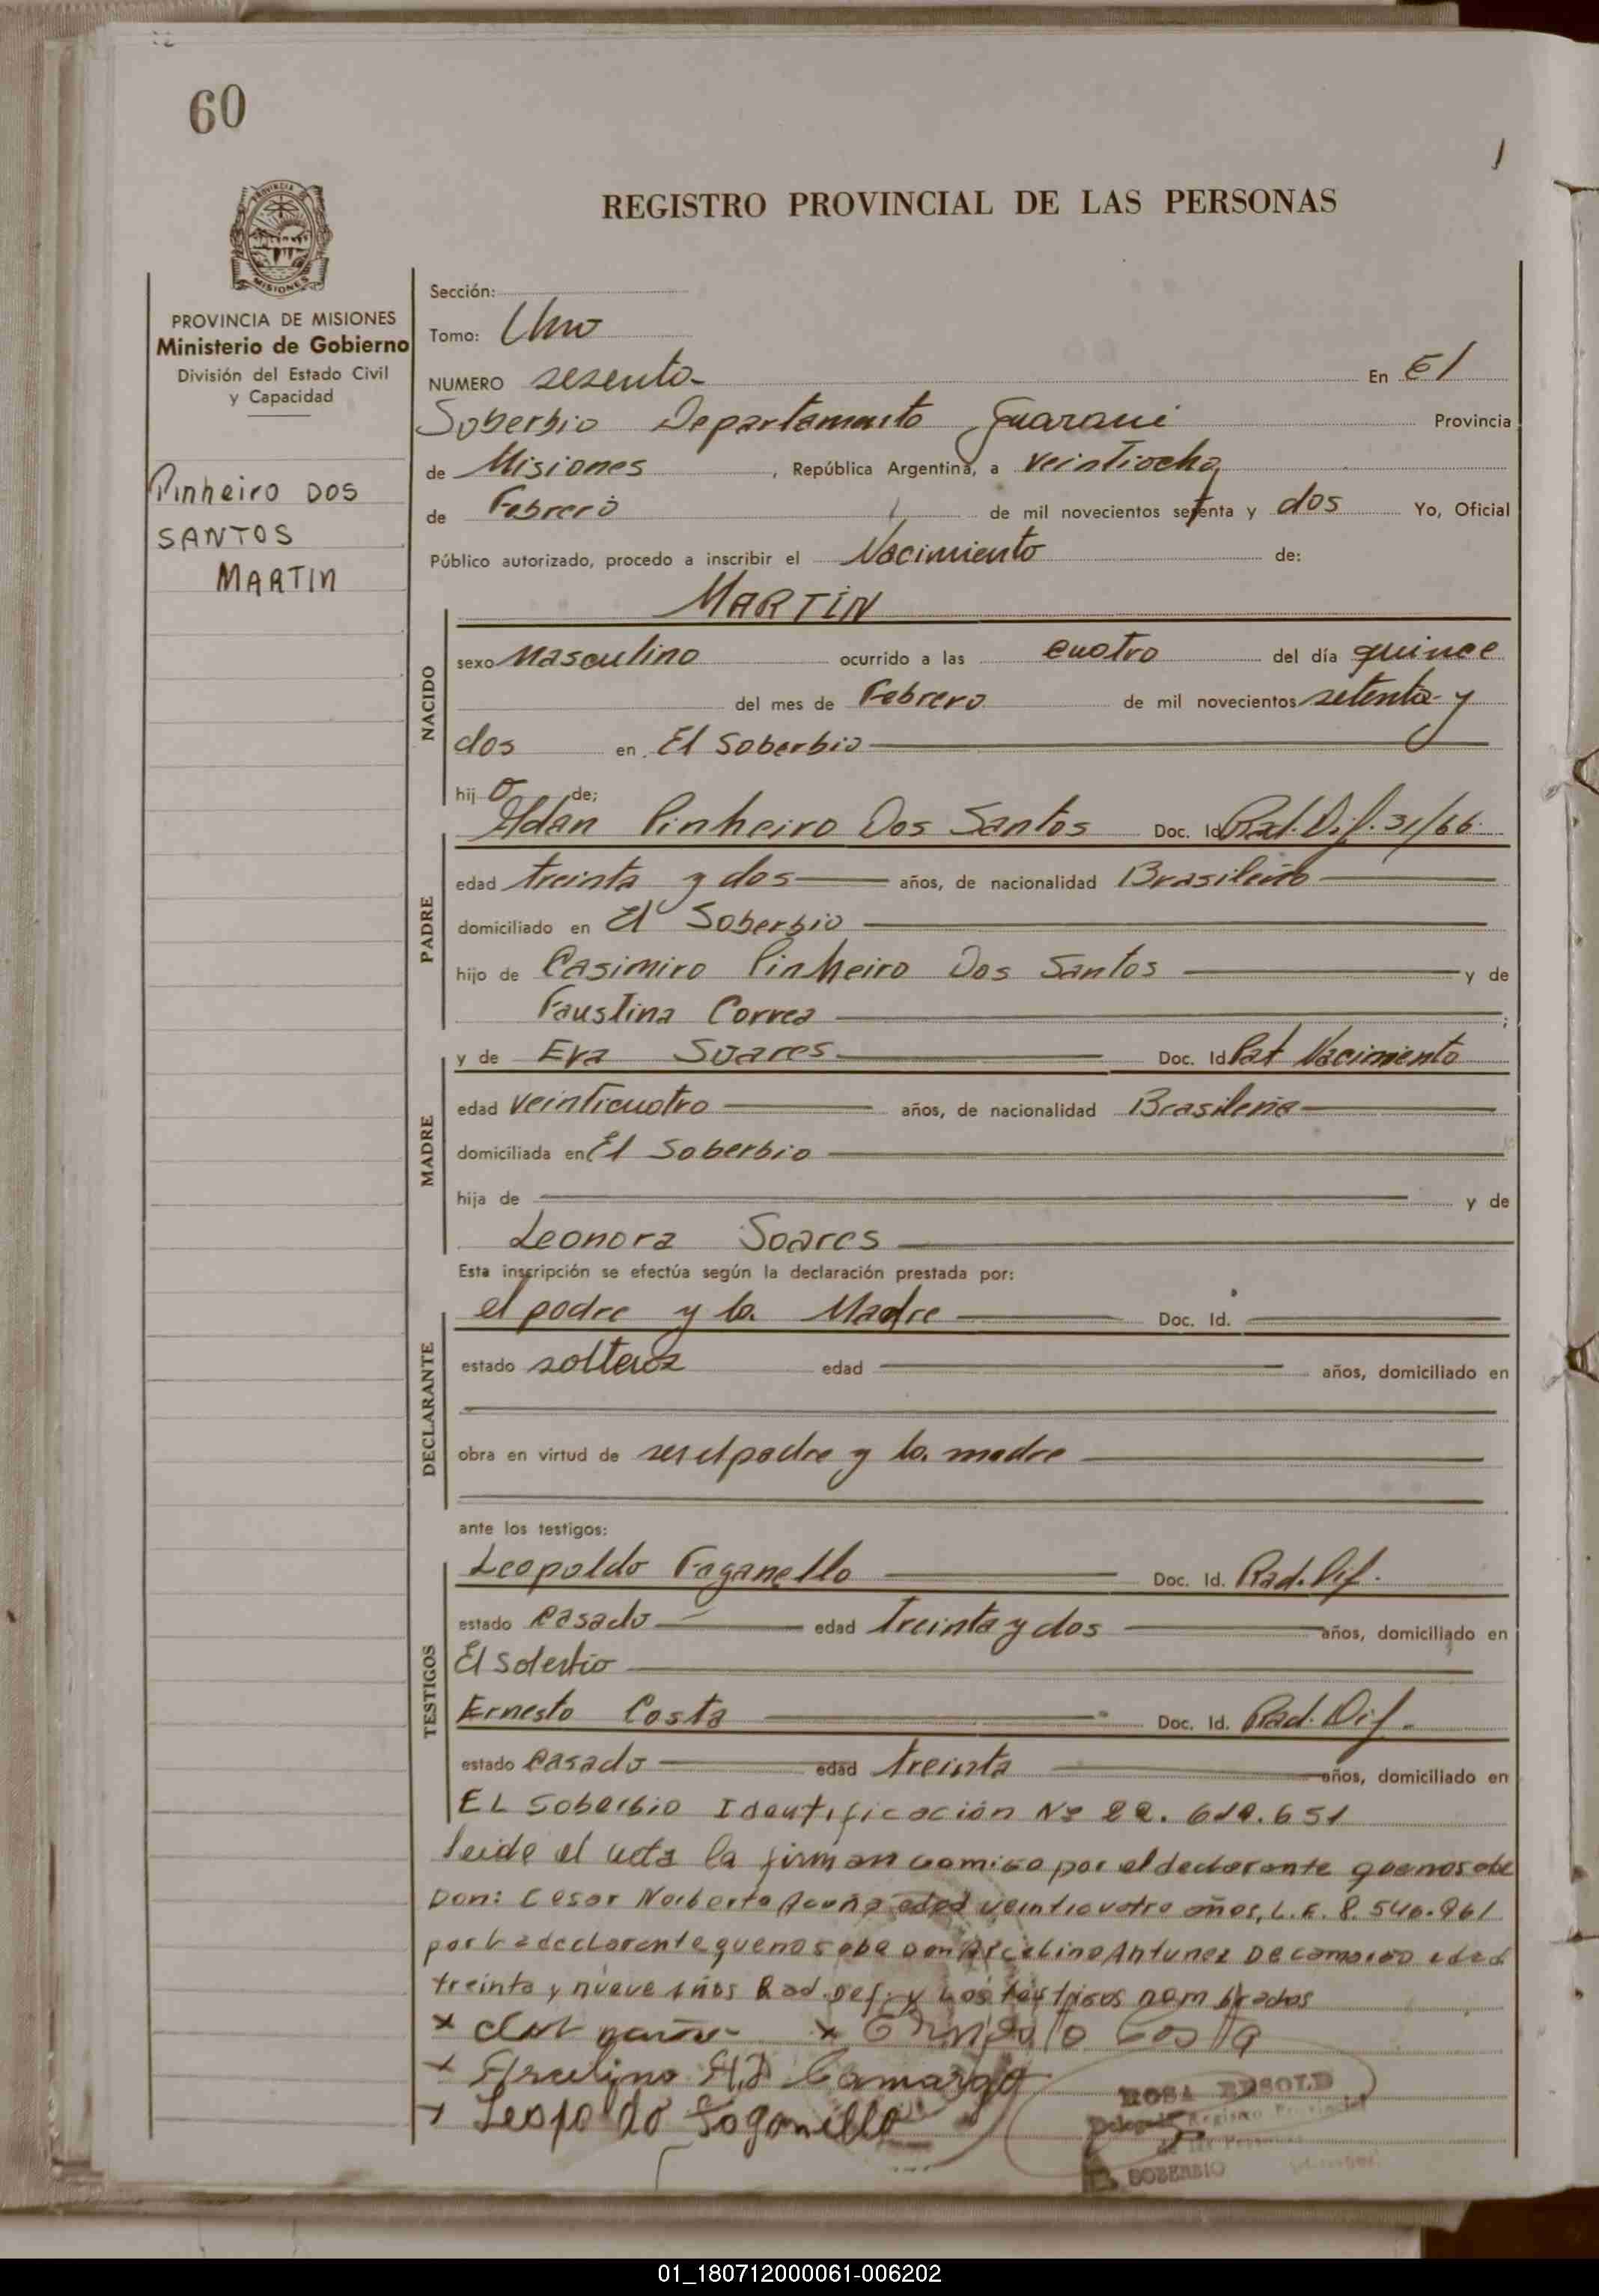 60
REGISTRO PROVINCIAL DE LAS PERSONAS
PROVINCIA DE MISIONES
Ministerio de Gobierno
División del Estado Civil
y Capacidad
Pinheiro DOS
SANTOS
MARTIN
Sección:
Tomo: Uno
NUMERO sesenta En El
Soberbio Departamento Guarani Provincia
de Misiones, República Argentina, a veintiocho
de Febrero de mil novecientos setenta y dos Yo, Oficial
Público autorizado, procedo a inscribir el Nacimiento de:
MARTIN
NACIDO
sexo Masculino ocurrido a las cuatro del día quince
del mes de Febrero de mil novecientos setenta y
dos en El Soberbio
hij o de;
PADRE
Adan Pinheiro Dos Santos Doc. Id Rad. Dif. 31/66
edad treinta y dos años, de nacionalidad Brasileño
domiciliado en El Soberbio
hijo de Casimiro Pinheiro Dos Santos y de
Faustina Correa ;
MADRE
y de Eva Soares Doc. Id Part Nacimiento
edad veinticuatro años, de nacionalidad Brasileña
domiciliada en El Soberbio
hija de y de
Leonora Soares
Esta inscripción se efectúa según la declaración prestada por:
DECLARANTE
el padre y la Madre Doc. Id.
estado solteros edad años, domiciliado en
obra en virtud de ser el padre y la madre
ante los testigos:
TESTIGOS
Leopoldo Foganello Doc. Id. Rad. Dif.
estado Casado edad treinta y dos años, domiciliado en
El Soberbio
Ernesto Costa Doc. Id. Rad. Dif.
estado Casado edad treinta años, domiciliado en
EL Soberbio Identificación Nº 22.619.651
leida el acta la firman comigo por el declarante que no sabe
Don: Cesar Norberto Acuña edad veinticuatro años, L.E. 8.546.961
por la declarante que no sabe Don Arcelino Antunez De Camargo edad
treinta y nueve años Rad. Def. y los testigos nombrados
Costa
Arcelino A.D Camargo
Leopoldo Foganello
ROSA
Registro Provincial
de las Personas
SOBERBIO
01_180712000061-006202